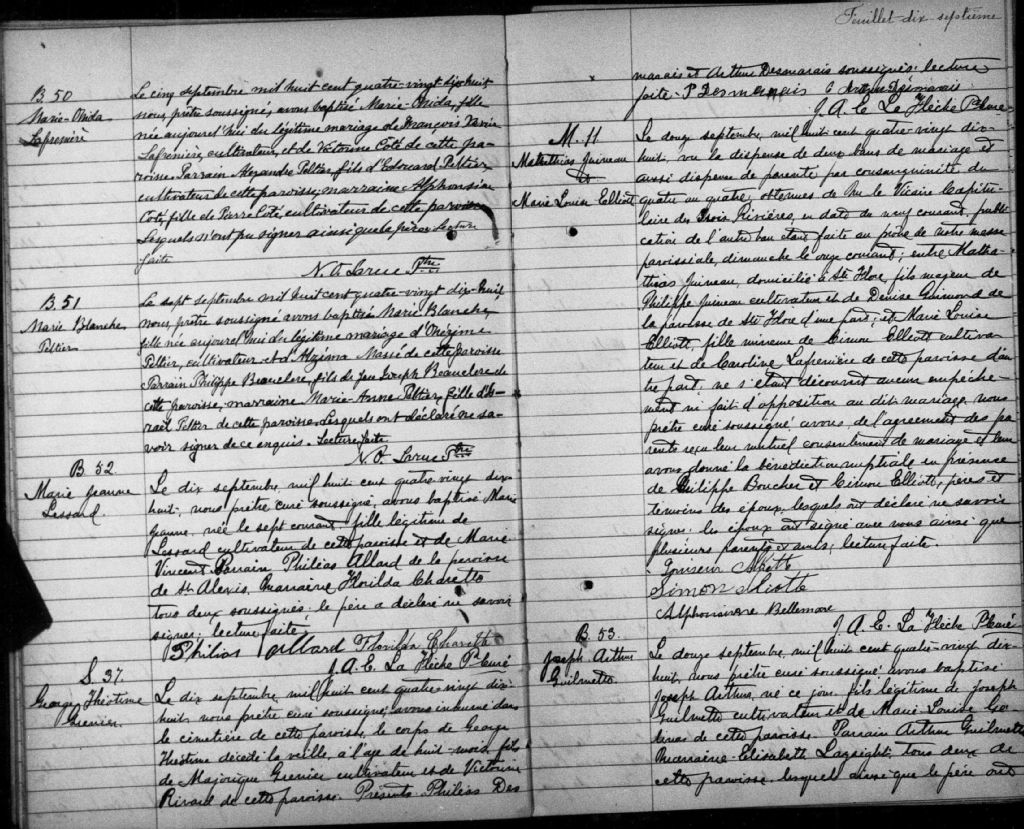 B. 50
Marie-Onida
Lafrenière
Le cinq septembre mil huit cent quatre-vingt dix-huit,
nous, prêtre soussigné, avons baptisé Marie-Onida, fille
née aujourd'hui du légitime mariage de François Xavier
Lafrenière, cultivateur, et de Victorine Coté de cette pa-
roisse. Parrain Alexandre Peltier, fils d'Edouard Peltier,
cultivateur de cette paroisse; marraine Alphonsine
Coté, fille de Pierre Coté, cultivateur de cette paroisse
Lesquels n'ont pu signer ainsi que le père. Lecture
faite
N. O. Larue Ptre
B 51
Marie Blanche
Peltier
Le sept septembre mil huit cent quatre-vingt dix-huit,
nous, prêtre soussigné avons baptisé Marie Blanche,
fille née aujourd'hui du légitime mariage d'Onézime
Peltier, cultivateur, et d'Alzéma Massé de cette paroisse
Parrain Philippe Beauclerc, fils de Jean Joseph Beauclerc de
cette paroisse, marraine Marie-Anne Peltier, fille d'
Peltier de cette paroisse. Lesquels ont déclaré ne sa-
voir signer de ce enquis. Lecture faite
N. O. Larue Ptre
B 52
Marie Jeanne
Lessard.
Le dix septembre, mil huit cent quatre-vingt dix-
huit, nous, prêtre curé soussigné, avons baptisé Marie
Jeanne, née le sept courant, fille légitime de
Lessard cultivateur de cette paroisse et de Marie
Vincent. Parrain Philéas Allard de la paroisse
de St. Alexis, marraine Florilda Charette
tous deux soussignés. le père a déclaré ne savoir
signer; lecture faite.
Philias Allard Florilda Charette
J. A. E. La Flèche Ptre Curé
S. 37.
George Théotime
Grenier.
Le dix septembre, mil huit cent quatre vingt dix-
huit, nous prêtre curé soussigné, avons inhumé dans
le cimetière de cette paroisse, le corps de George
Théotime décédé la veille, à l'âge de huit mois, fils
de Majorique Grenier cultivateur et de Victorine
Rivard de cette paroisse. Présents Philéas Des
Feuillet dix-septième
marais et Arthur Desmarais soussignés; lecture
faite. P Desmarais Arthur Désmarais
J. A. E. La Flèche Ptre Curé
M. 11
Mathathias Juineau
et
Marie Louise Elliott
Le douze septembre, mil huit cent quatre-vingt dix-
huit, vu la dispense de deux bans de mariage et
aussi dispense de parenté par consanguinité du
quatre au quatre, obtenues de Mr le Vicaire Capitu-
laire des Trois Rivières, en date du neuf courant, publi-
cation de l'autre ban étant faite au prône de notre messe
paroissiale, dimanche le onze courant; entre Matha-
thias Juineau, domicilié à Ste Flore, fils majeur de
Philippe Juineau cultivateur et de Denise Guimond de
la paroisse de Ste Flore d'une part; et Marie Louise
Elliott, fille mineure de Simon Elliott cultiva-
teur et de Caroline Lafrenière de cette paroisse d'au-
tre part; ne s'étant découvert aucun empêche-
ment ni fait d'opposition au dit mariage, nous
prêtre curé soussigné avons, de l'agrément des pa-
rents reçu leur mutuel consentement de mariage et leur
avons donné la bénédiction nuptiale en présence
de Philippe Boucher et Simon Elliott, pères et
témoins des époux, lesquels ont déclaré ne savoir
signer. les époux ont signé avec nous ainsi que
plusieurs parents et amis; lecture faite.
Simon
Bellemare
J. A. E. La Flèche Ptre Curé
B. 53.
Joseph Arthur
Guilmette
Le douze septembre, mil huit cent quatre-vingt dix-
huit, nous prêtre curé soussigné avons baptisé
Joseph Arthur, né ce jour, fils légitime de Joseph
Guilmette cultivateur et de Marie-Louise
de cette paroisse. Parrain Arthur Guilmette
Marraine Elisabeth tous deux de
cette paroisse, lesquels ainsi que le père ont